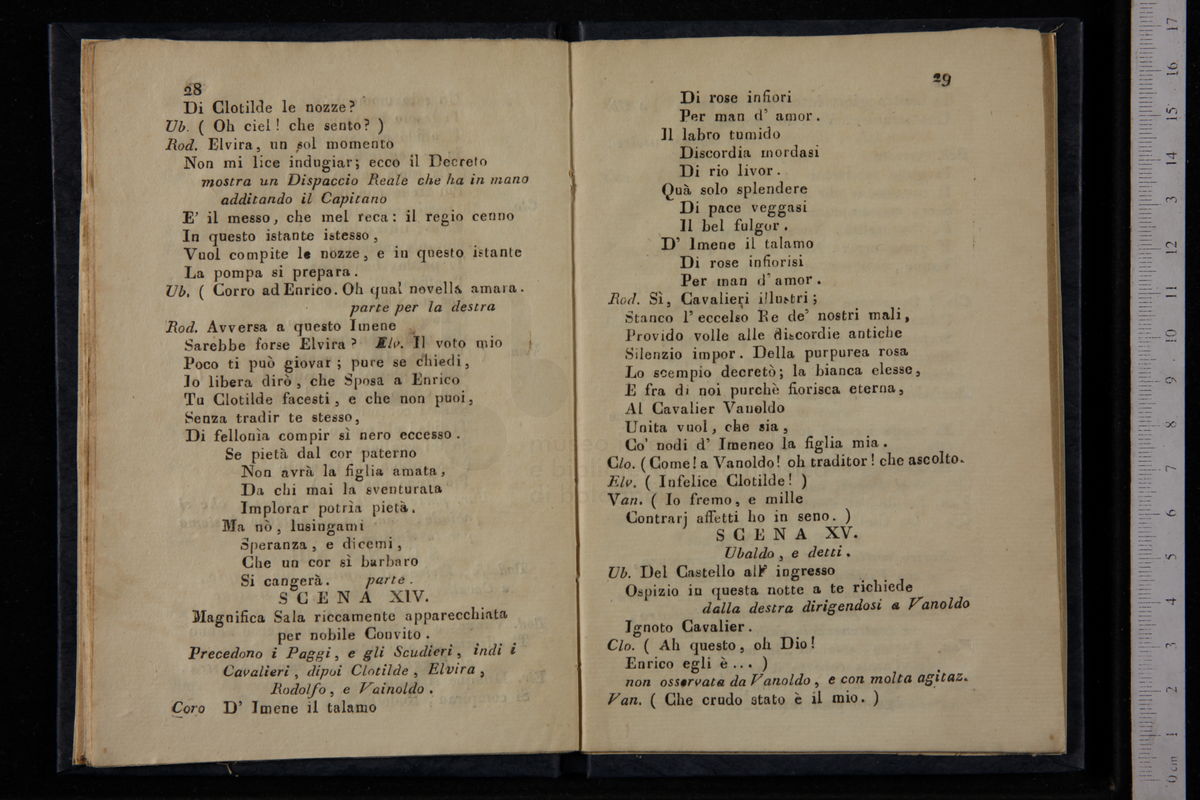 28
Di Clotilde le nozze?
Ub. ( Oh ciel! che sento? )
Rod. Elvira, un sol momento
Non mi lice indugiar; ecco il Decreto
mostra un Dispaccio Reale che ha in mano
additando il Capitano
E' il messo, che mel reca: il regio cenno
In questo istante istesso,
Vuol compite le nozze, e in questo istante
La pompa si prepara.
Ub. ( Corro ad Enrico. Oh qual novella amara.
parte per la destra
Rod. Avversa a questo Imene
Sarebbe forse Elvira? Elv. Il voto mio
Poco ti può giovar; pure se chiedi,
Io libera dirò, che Sposa a Enrico
Tu Clotilde facesti, e che non puoi,
Senza tradir te stesso,
Di fellonìa compir sì nero eccesso.
Se pietà dal cor paterno
Non avrà la figlia amata,
Da chi mai la sventurata
Implorar potria pietà.
Ma nò, lusingami
Speranza, e dicemi,
Che un cor sì barbaro
Si cangerà. parte.
SCENA XIV.
Magnifica Sala riccamente apparecchiata
per nobile Convito.
Precedono i Paggi, e gli Scudieri, indi i
Cavalieri, dipoi Clotilde, Elvira,
Rodolfo, e Vainoldo.
Coro D' Imene il talamo
29
Di rose infiori
Per man d' amor.
Il labro tumido
Discordia mordasi
Di rio livor.
Quà solo splendere
Di pace veggasi
Il bel fulgor.
D' Imene il talamo
Di rose infiorisi
Per man d' amor.
Rod. Sì, Cavalieri illustri;
Stanco l' eccelso Re de' nostri mali,
Provido volle alle discordie antiche
Silenzio impor. Della purpurea rosa
Lo scempio decretò; la bianca elesse,
E fra di noi purchè fiorisca eterna,
Al Cavalier Vanoldo
Unita vuol, che sia,
Co' nodi d' Imeneo la figlia mia.
Clo. ( Come! a Vanoldo! oh traditor! che ascolto.
Elv. ( Infelice Clotilde! )
Van. ( Io fremo, e mille
Contrarj affetti ho in seno. )
SCENA XV.
Ubaldo, e detti.
Ub. Del Castello all' ingresso
Ospizio in questa notte a te richiede
dalla destra dirigendosi a Vanoldo
Ignoto Cavalier.
Clo. ( Ah questo, oh Dio!
Enrico egli è... )
non osservata da Vanoldo, e con molta agitaz.
Van. ( Che crudo stato è il mio. )
0 cm 1 2 3 4 5 6 7 8 9 10 11 12 13 14 15 16 17